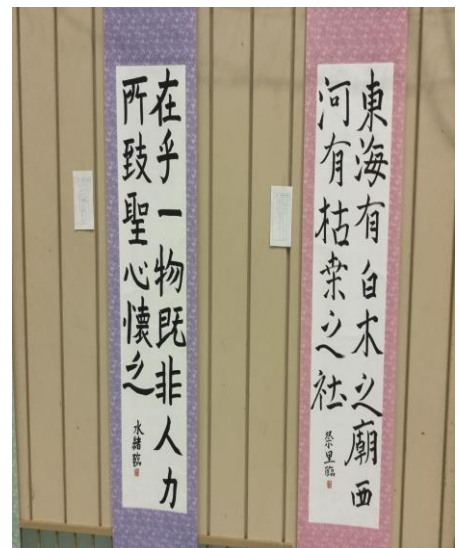 東海有白木之廟西
河有枯桒之社
里臨
在乎一物既非人力
所致聖心懷之
水緒臨